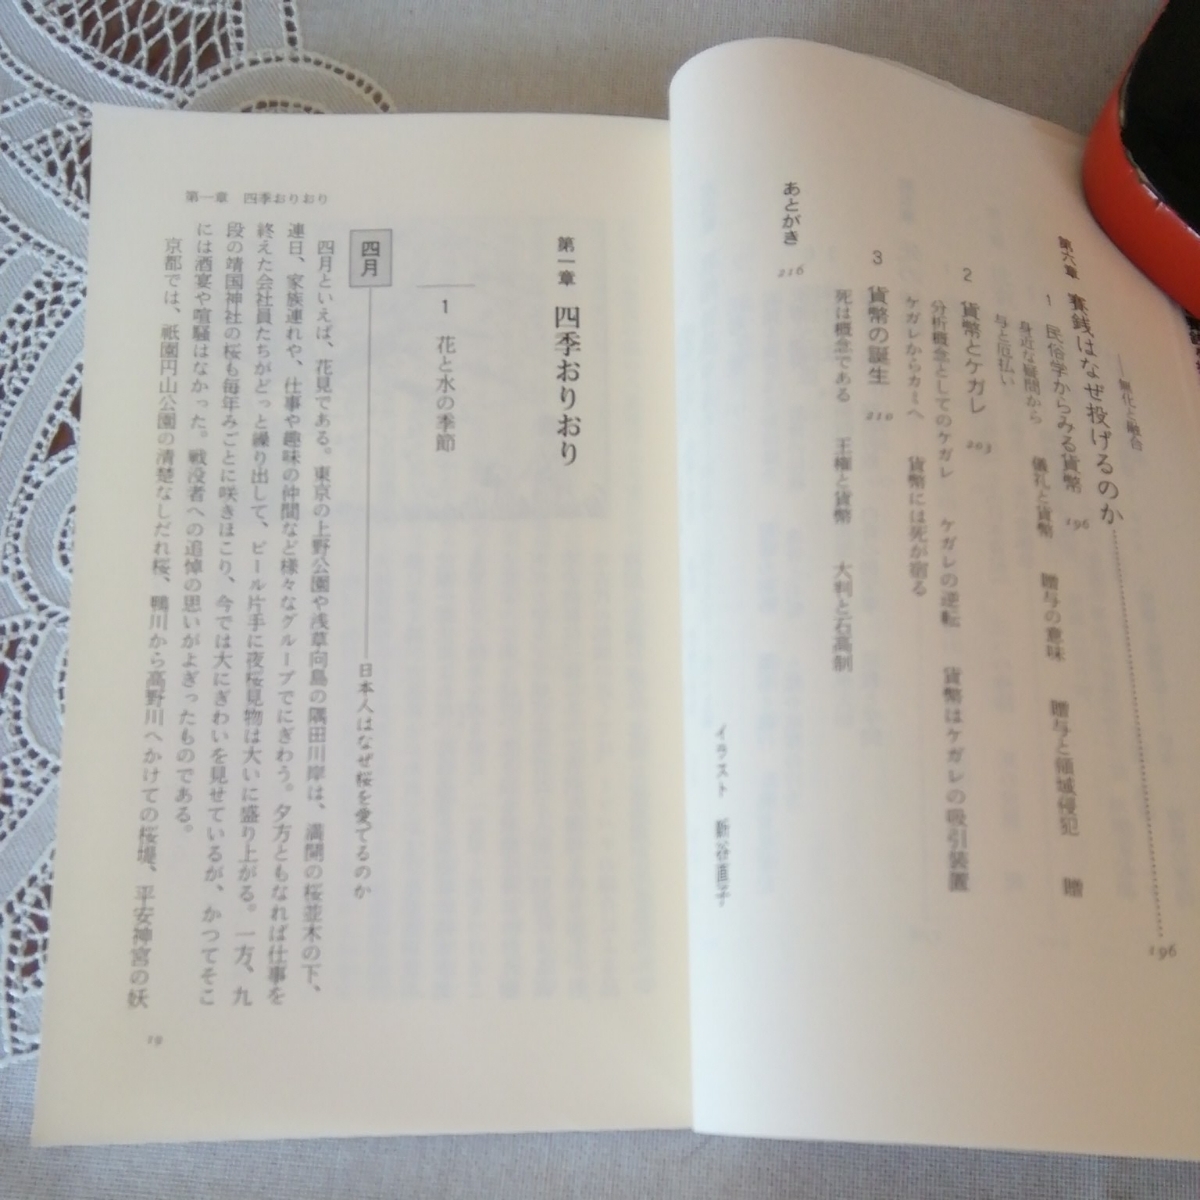 ――無化と融合
第六章 賽銭はなぜ投げるのか 196
1 民俗学からみる貨幣 196
身近な疑問から 儀礼と貨幣 贈与の意味 贈与と領域侵犯 贈
与と厄払い
2 貨幣とケガレ 203
分析概念としてのケガレ ケガレの逆転 貨幣はケガレの吸引装置
ケガレからカミへ 貨幣には死が宿る
3 貨幣の誕生 210
死は概念である 王権と貨幣 大判と石高制
あとがき 216
イラスト 新谷直子
第一章 四季おりおり
1 花と水の季節
四月 日本人はなぜ桜を愛でるのか
四月といえば、花見である。東京の上野公園や浅草向島の隅田川岸は、満開の桜並木の下、
連日、家族連れや、仕事や趣味の仲間など様々なグループでにぎわう。夕方ともなれば仕事を
終えた会社員たちがどっと繰り出して、ビール片手に夜桜見物は大いに盛り上がる。一方、九
段の靖国神社の桜も毎年みごとに咲きほこり、今では大にぎわいを見せているが、かつてそこ
には酒宴や喧騒はなかった。戦没者への追悼の思いがよぎったものである。
京都では、祇園円山公園の清楚なしだれ桜、鴨川から高野川へかけての桜堤、平安神宮の妖
第一章 四季おりおり
19